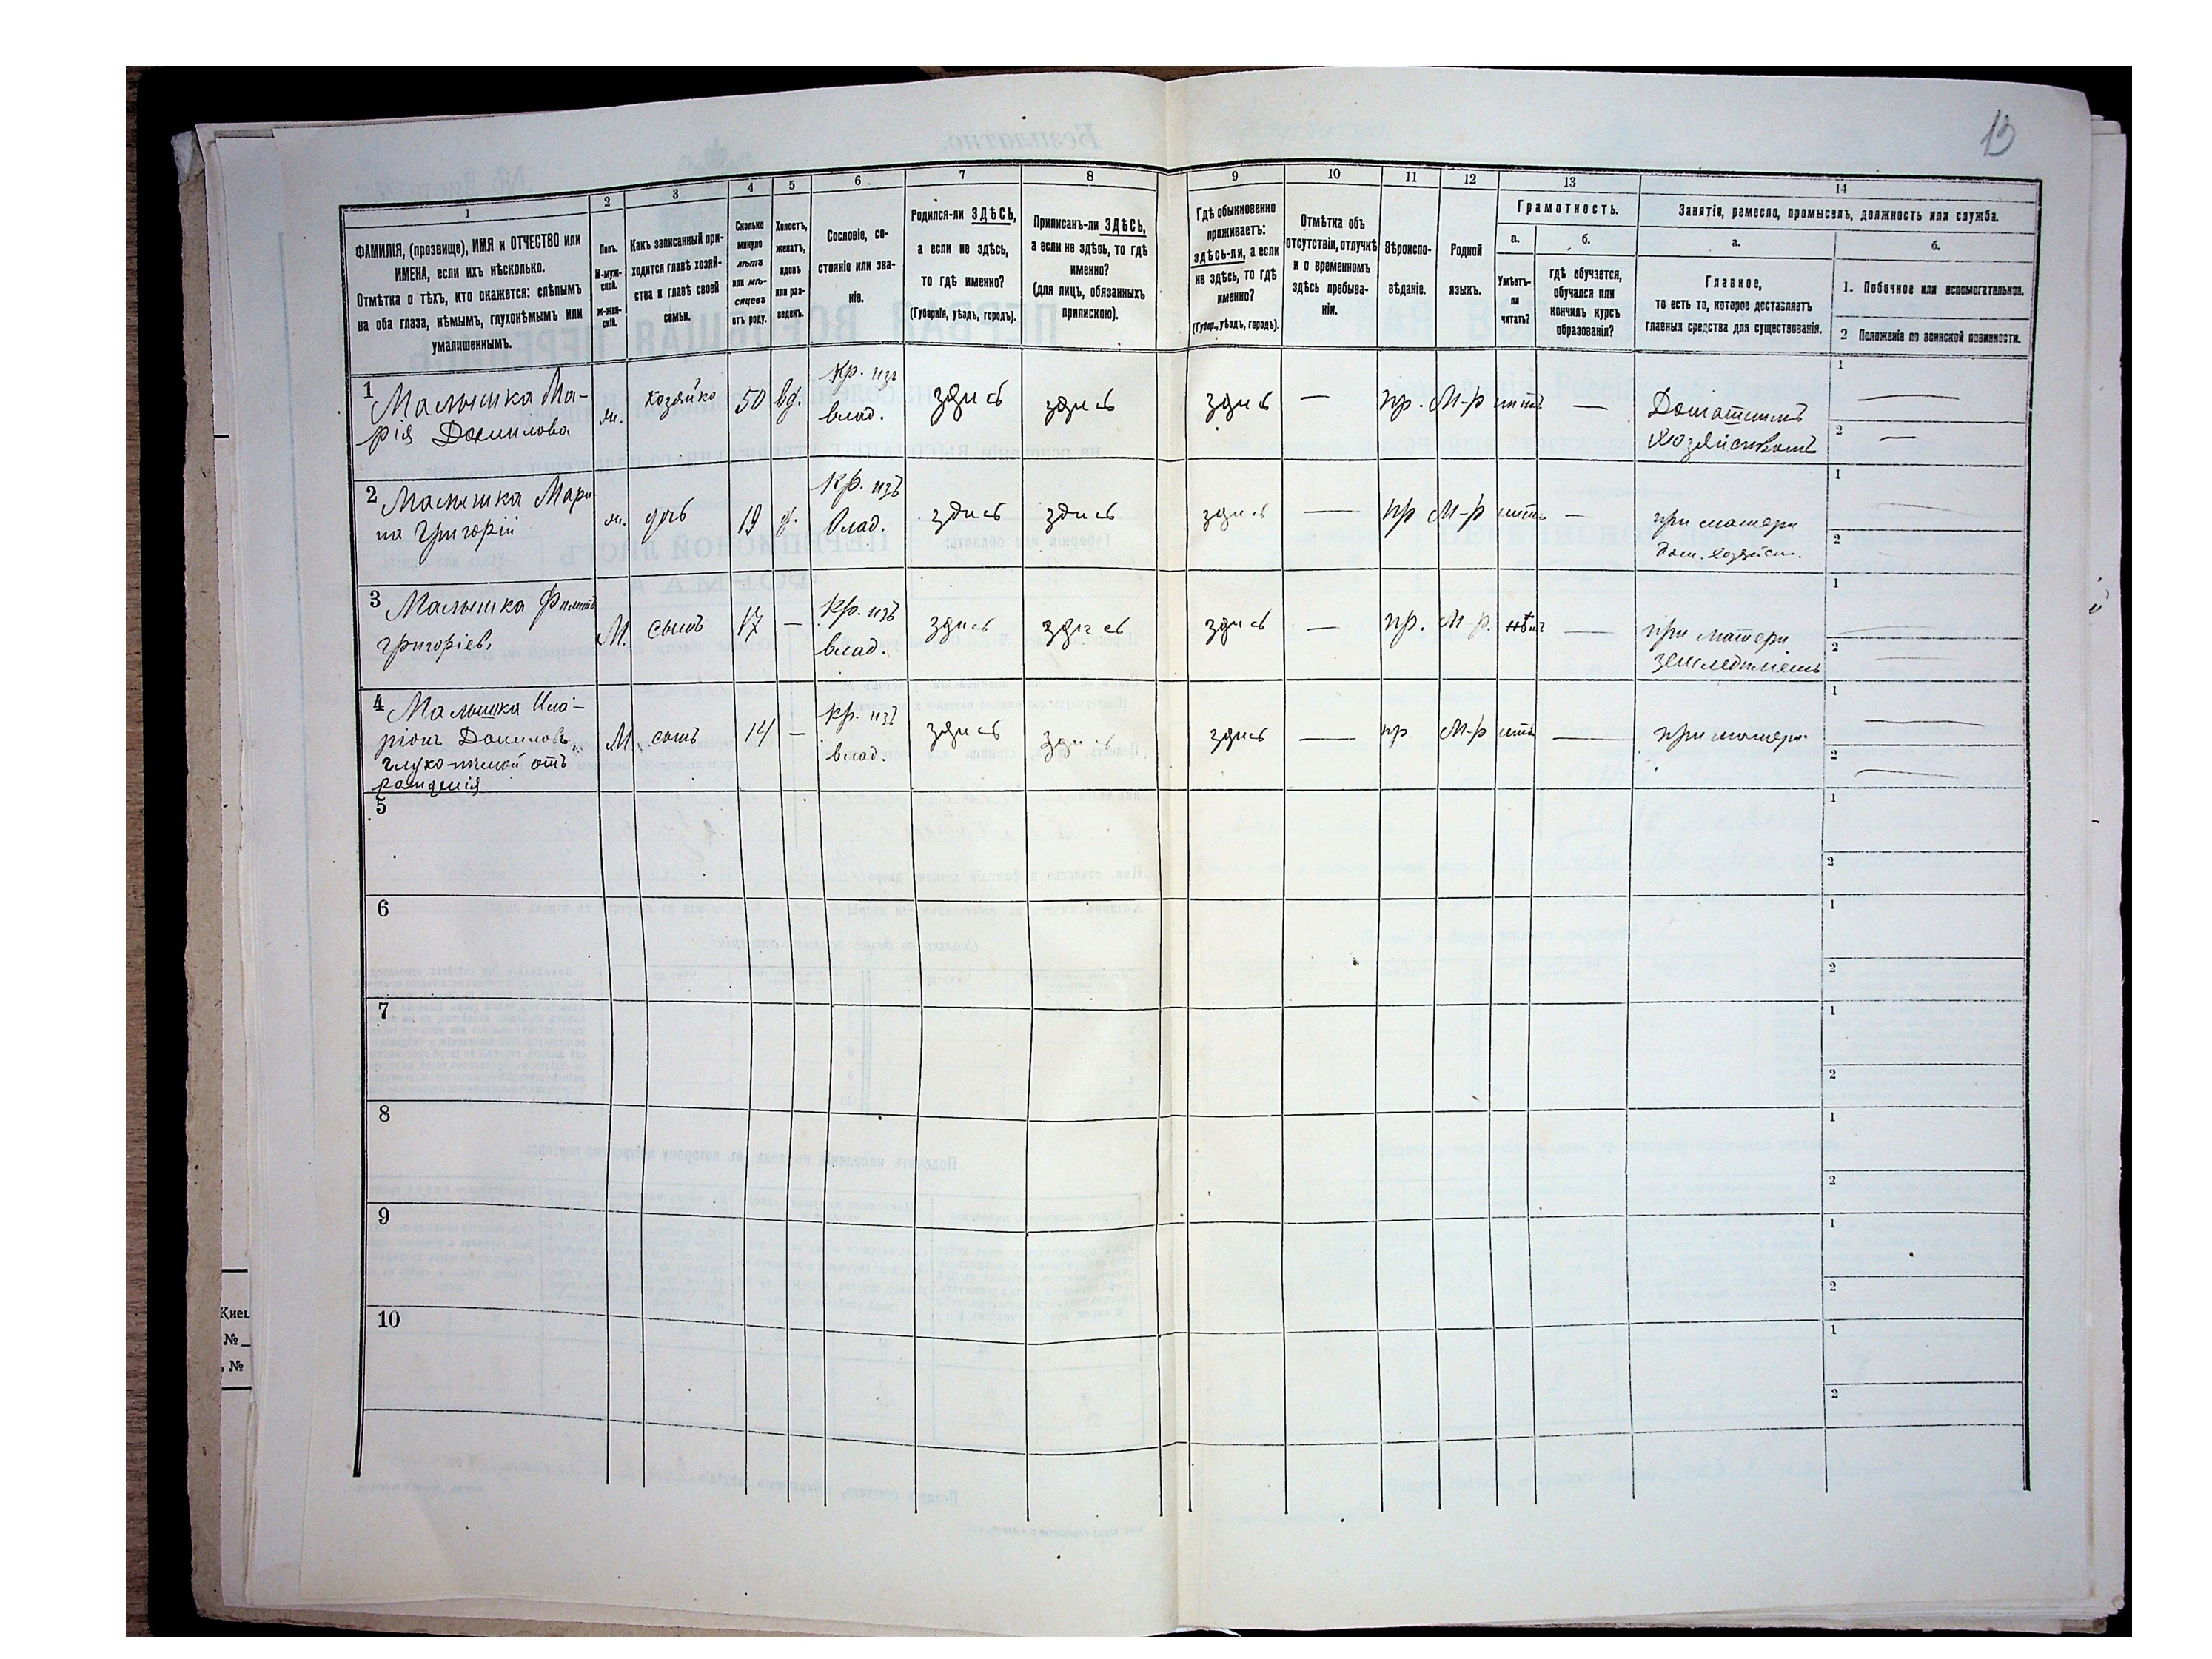 13
1 2 3 4 5 6 7 8 9 10 11 12 13 14
ФАМИЛІЯ, (прозвище), ИМЯ и ОТЧЕСТВО или
ИМЕНА, если ихъ нѣсколько.
Отмѣтка о тѣхъ, кто окажется: слѣпымъ
на оба глаза, нѣмымъ, глухонѣмымъ или
умалишеннымъ.
Полъ.
М-муж-
ской.
ж-жен-
скій.
Какъ записанный при-
ходится главѣ хозяй-
ства и главѣ своей
семьи.
Сколько
минуло
лѣтъ
или мѣ-
сяцевъ
отъ роду.
Холостъ,
женатъ,
вдовъ
или раз-
веденъ.
Сословіе, со-
стояніе или зва-
ніе.
Родился-ли ЗДѢСЬ,
а если не здѣсь,
то гдѣ именно?
(Губернія, уѣздъ, городъ).
Приписанъ-ли ЗДѢСЬ,
а если не здѣсь, то гдѣ
именно?
(для лицъ, обязанныхъ
припискою).
Гдѣ обыкновенно
проживаетъ:
здѣсь-ли, а если
не здѣсь, то гдѣ
именно?
(Губер., уѣздъ, городъ).
Отмѣтка объ
отсутствіи, отлучкѣ
и о временномъ
здѣсь пребыва-
ніи.
Вѣроиспо-
вѣданіе.
Родной
языкъ.
Грамотность.
а.
Умѣетъ-
ли
читать?
б.
гдѣ обучается,
обучался или
кончилъ курсъ
образованія?
Занятія, ремесло, промыселъ, должность или служба.
а.
Главное,
то есть то, которое доставляетъ
главныя средства для существованія.
б.
1. Побочное или вспомогательное.
2 Положеніе по воинской повинности.
1 Малышка Ма-
рія Данилова
ж. хозяйка 50 вд. кр. изъ
влад.
здѣсь здѣсь здѣсь — пр. М-р нѣтъ — Домашнимъ
хозяйствомъ
1 —
2 —
2 Малышка Мари
на Григорій
ж. дочь 19 д. кр. изъ
влад.
здѣсь здѣсь здѣсь — пр М-р нѣтъ — при матери
дом. хозяйст.
1 —
2 —
3 Малышка
Григоріев.
М. сынъ 17 — кр. изъ
влад.
здѣсь здѣсь здѣсь — пр. М-р. нѣтъ — при матери
1 —
2 —
4 Малышка Ила-
ріонъ Данилов.
глухо-нѣмой отъ
рожденія
М. сынъ 14 — кр. изъ
влад.
здѣсь здѣсь здѣсь — пр М-р нѣтъ — при матери
1 —
2 —
5
1
2
6
1
2
7
1
2
8
1
2
9
1
2
10
1
2
№
№